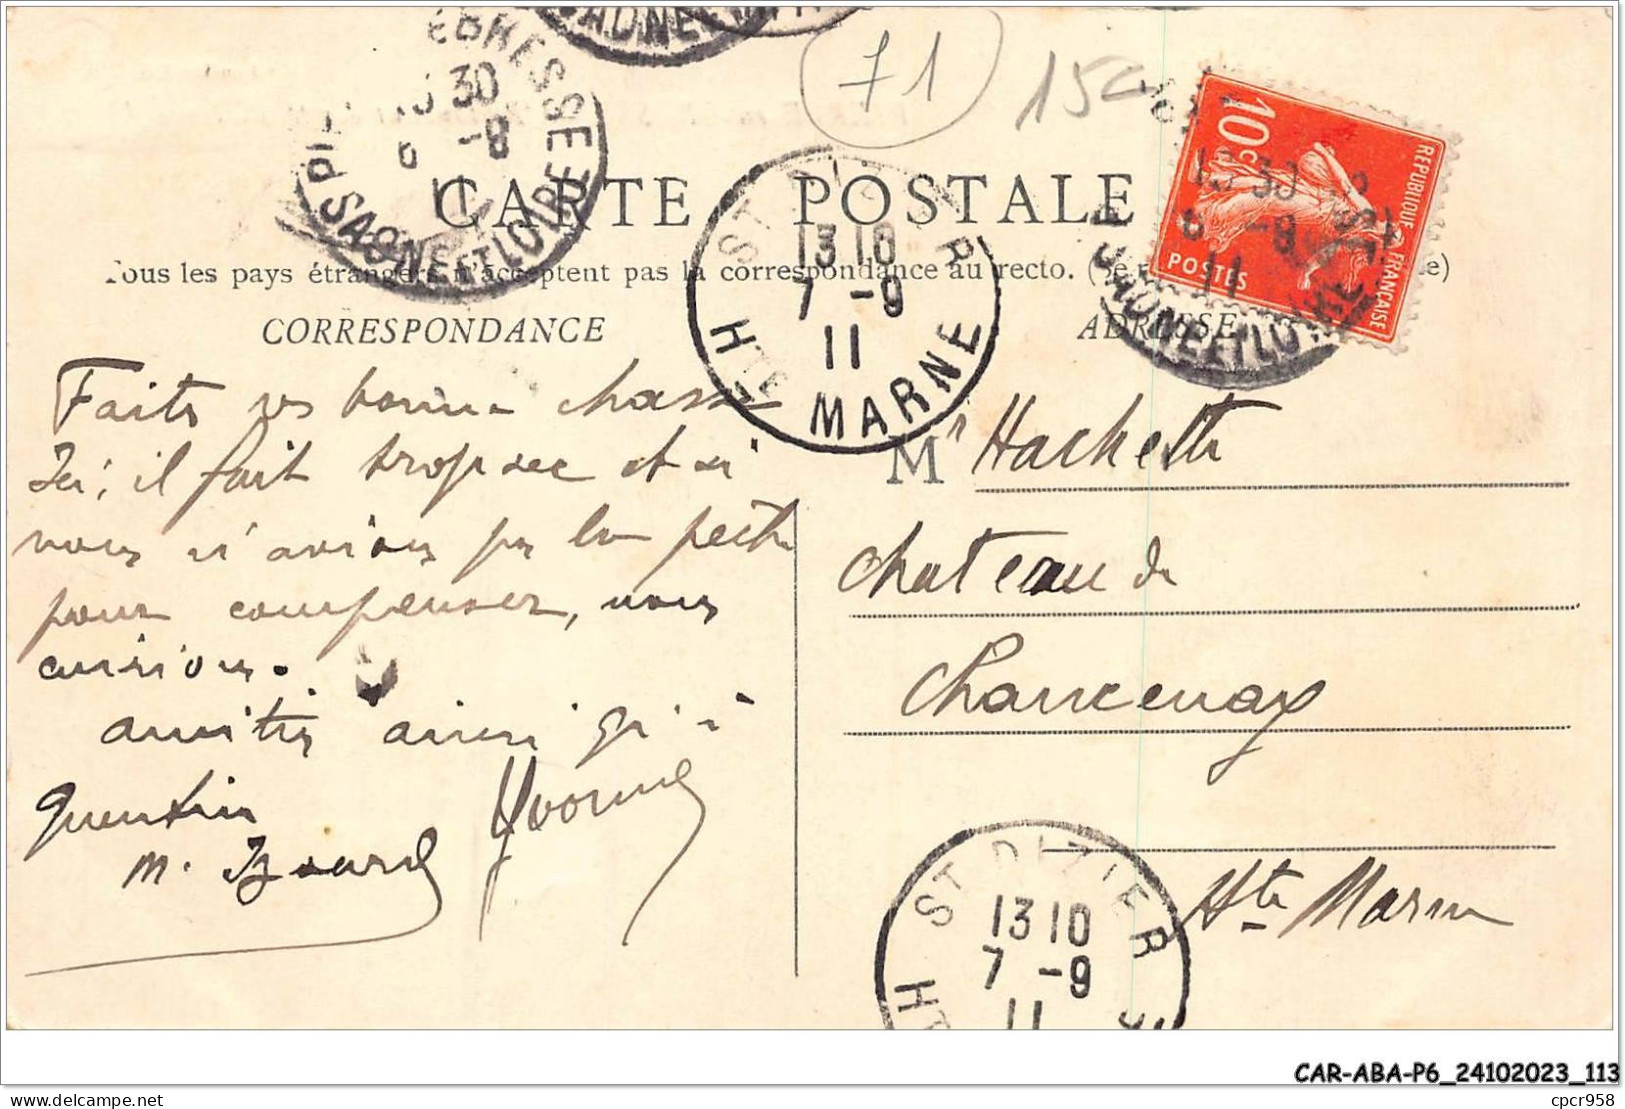 71
15
CARTE POSTALE
Tous les pays étrangers n'acceptent pas la correspondance au recto. (Se
CORRESPONDANCE
ADRESSE
10c
REPUBLIQUE FRANÇAISE
POSTES
10 30
6 -9
11
SAONE ET LOIRE
ST DIZIER
13 10
7 -9
11
HTE MARNE
Faites vos bonne chasse
Ici, il fait trop sec et si
nous n'avions pas la pêche
pour compenser, nous
cuisions.
amitiés ainsi qu'à
Quentin Yvonne
M. Izouard
Mr Hachette
Chateau de
Chancenay
Hte Marne
ST DIZIER
13 10
7 -9
11
CAR-ABA-P6_24102023_113
cpcr958